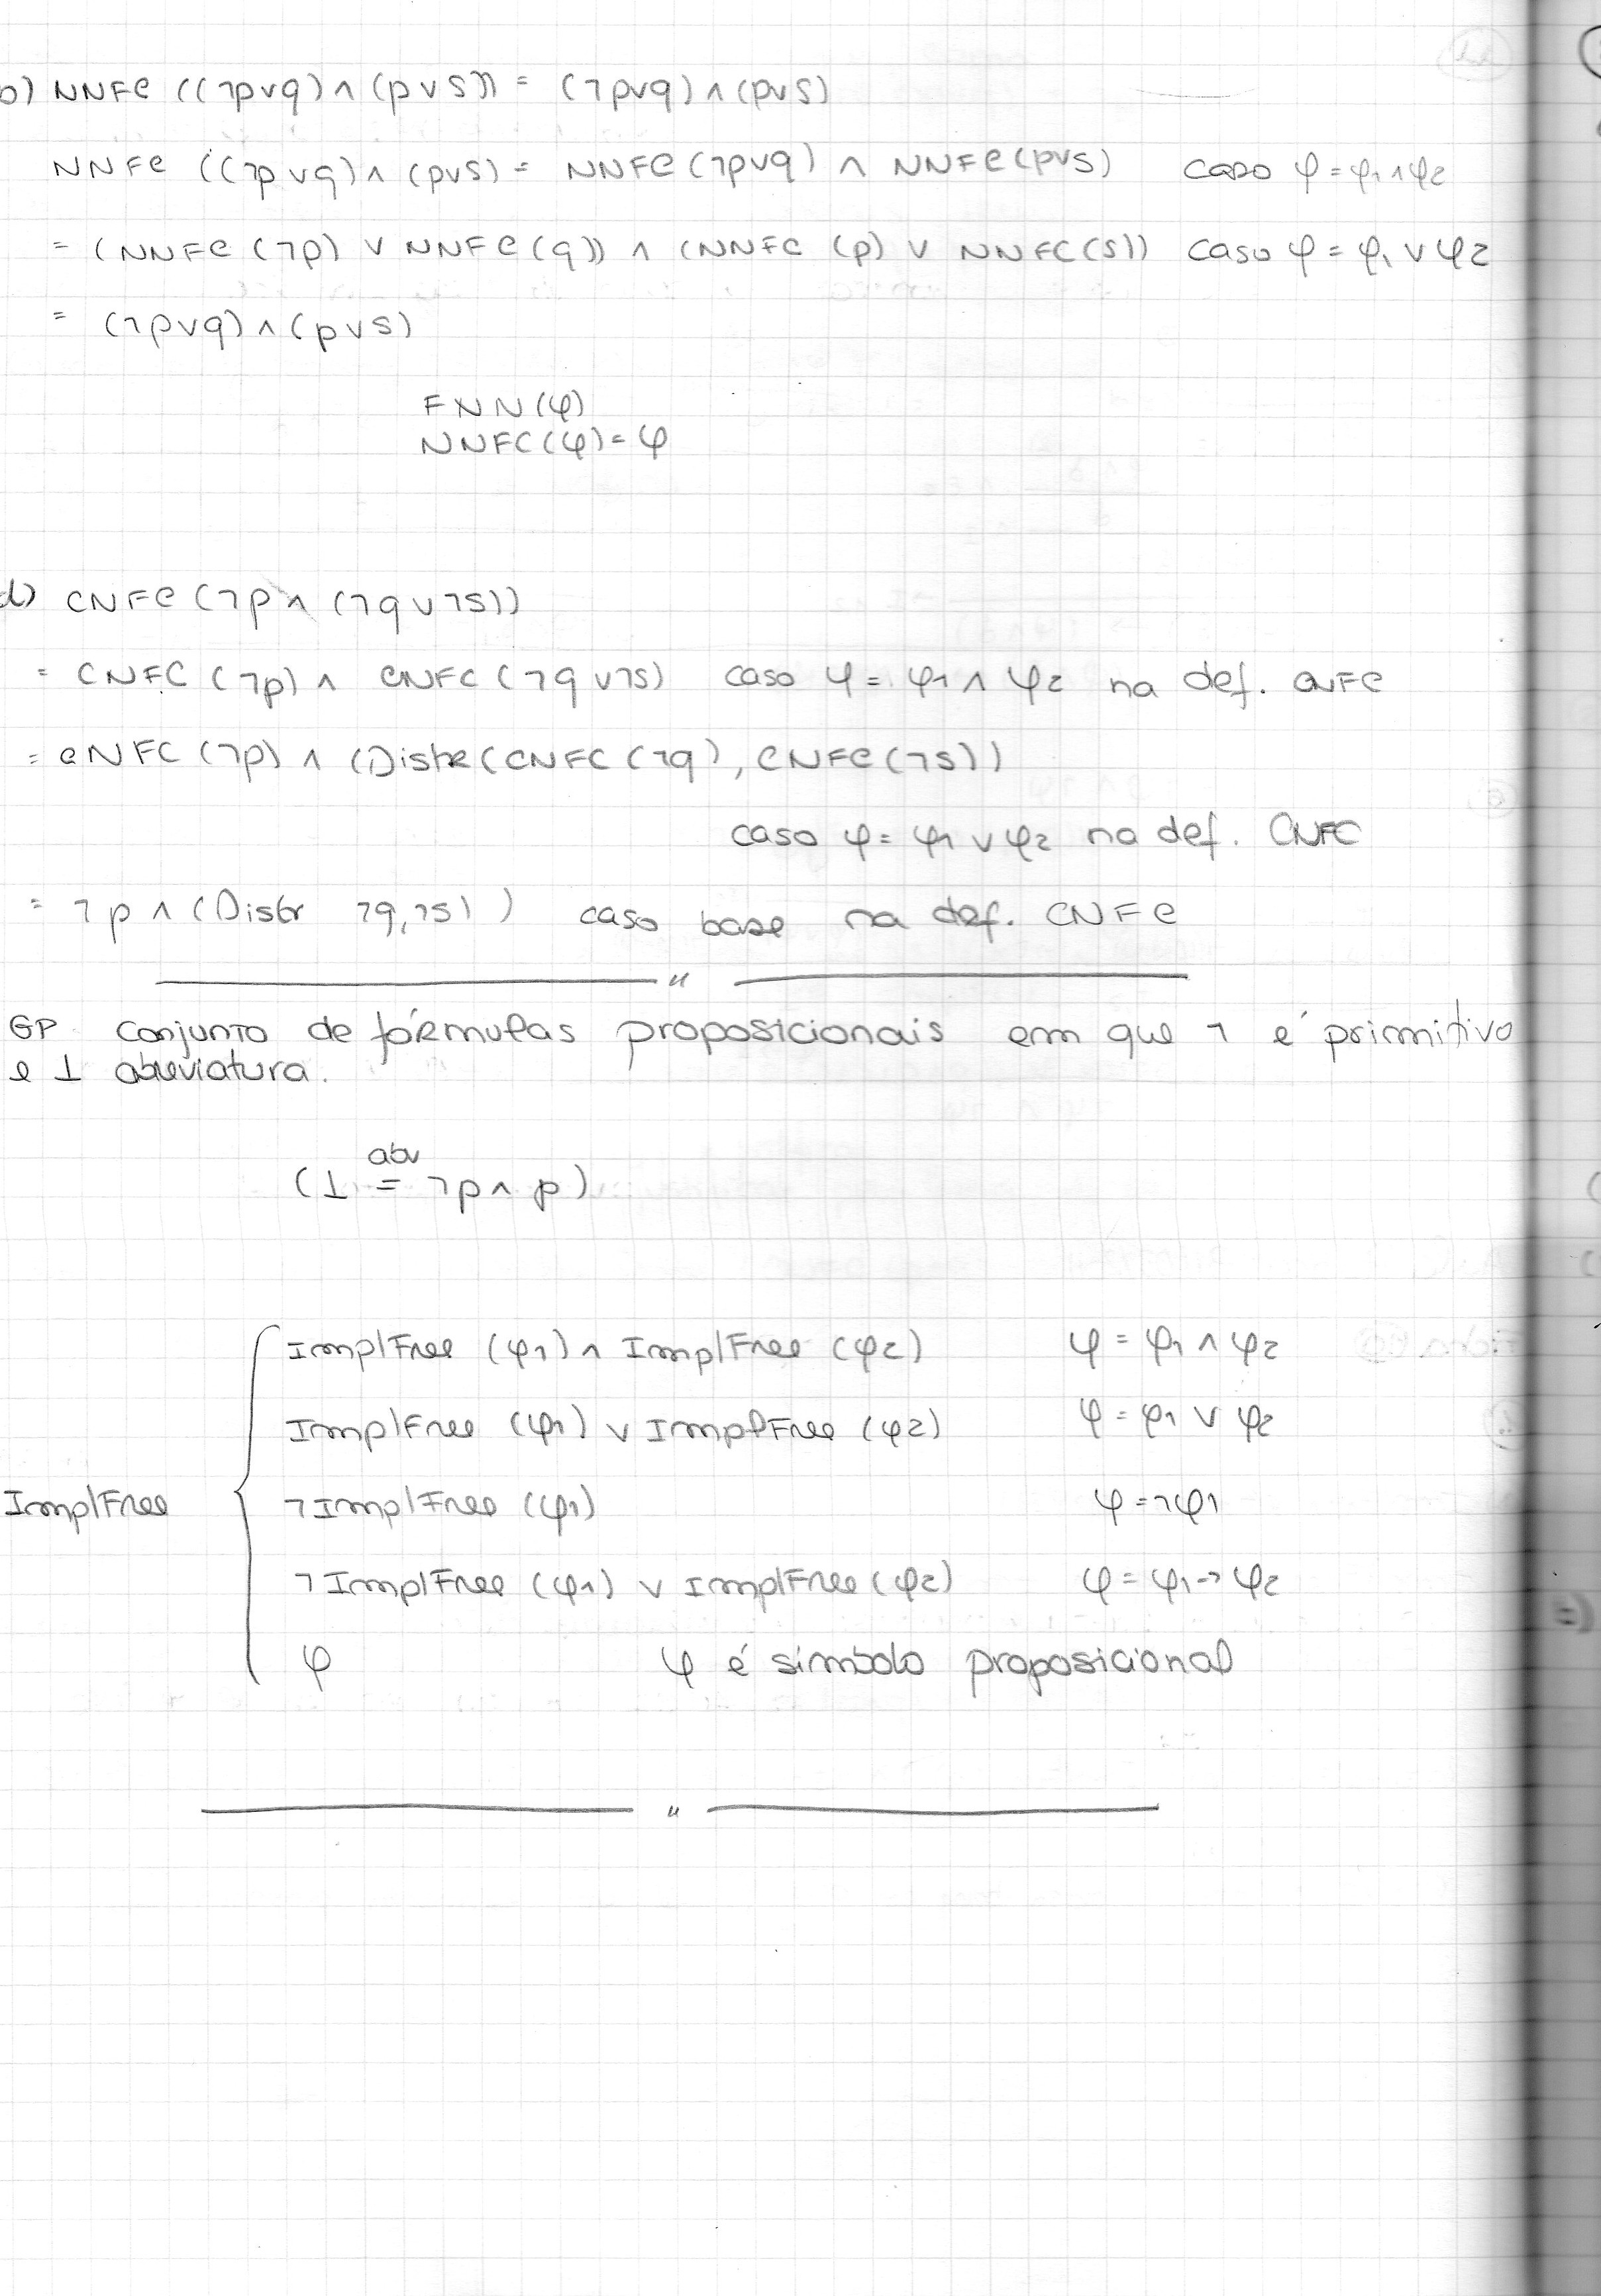 b) NNFC ((¬p∨q) ∧ (p∨s)) = (¬p∨q) ∧ (p∨s)
NNFC ((¬p∨q) ∧ (p∨s) = NNFC (¬p∨q) ∧ NNFC (p∨s) caso φ = φ1 ∧ φ2
= (NNFC (¬p) ∨ NNFC (q)) ∧ (NNFC (p) ∨ NNFC (s)) caso φ = φ1 ∨ φ2
= (¬p∨q) ∧ (p∨s)
FNN (φ)
NNFC (φ) = φ
d) CNFC (¬p ∧ (¬q ∨ ¬s))
= CNFC (¬p) ∧ CNFC (¬q ∨ ¬s) caso φ = φ1 ∧ φ2 na def. CNFC
= CNFC (¬p) ∧ (Distr (CNFC (¬q), CNFC (¬s))
caso φ = φ1 ∨ φ2 na def. CNFC
= ¬p ∧ (Distr ¬q, ¬s) ) caso base na def. CNFC
GP conjunto de fórmulas proposicionais em que ¬ é primitivo
e ⊥ abreviatura.
abv
(⊥ = ¬p ∧ p)
ImplFree (φ1) ∧ ImplFree (φ2) φ = φ1 ∧ φ2
ImplFree (φ1) ∨ ImplFree (φ2) φ = φ1 ∨ φ2
ImplFree { ¬ImplFree (φ1) φ = ¬φ1
¬ImplFree (φ1) ∨ ImplFree (φ2) φ = φ1 → φ2
φ φ é símbolo proposicional